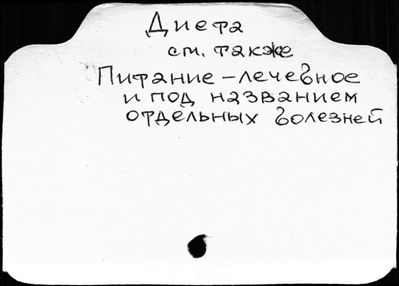 Диета
см. также
Питание - лечебное
и под названием
отдельных болезней